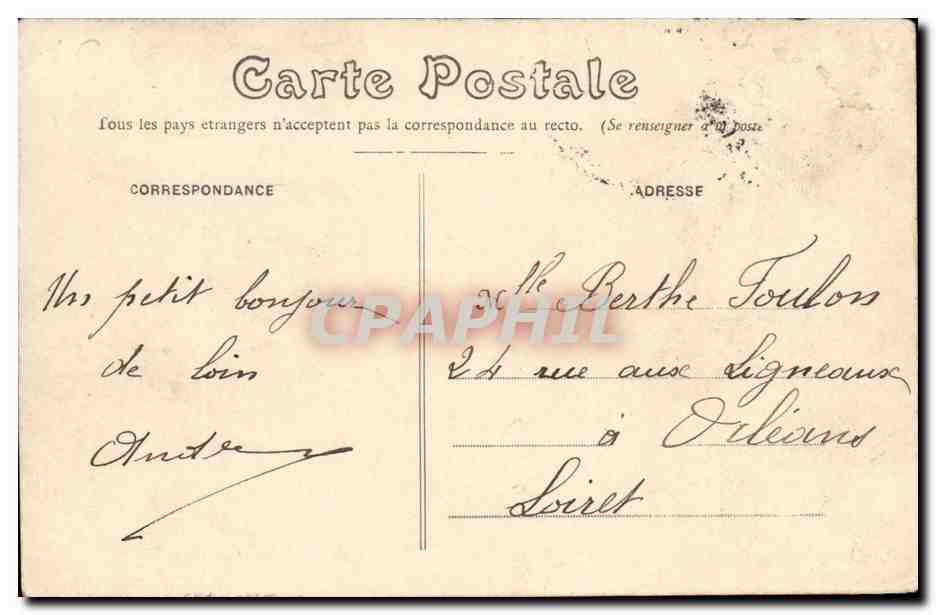 Carte Postale
Tous les pays etrangers n'acceptent pas la correspondance au recto. (Se renseigner à la poste
CORRESPONDANCE
ADRESSE
Un petit bonjour
de loin
André
Mlle Berthe Toulon
24 rue aux Ligneaux
à Orléans
Loiret
CPAPHIL